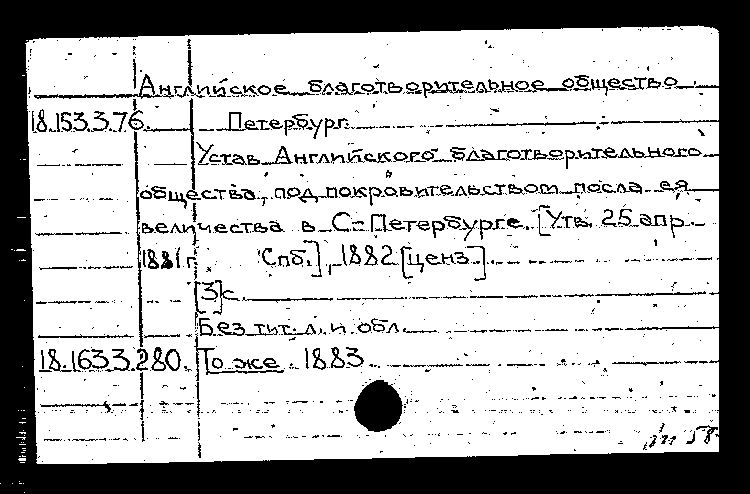 Английское благотворительное общество.
18.153.3.76. Петербург.
Устав Английского благотворительного
общества, под покровительством посла ея
величества в С=Петербурге. [Утв. 25 апр.
1881 г. Спб.], 1882 [ценз.].
[3] с.
Без тит. л. и обл.
18.163.3.280. То же. 1883
58